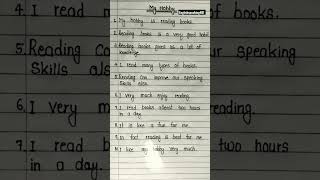 My Hobby
1. My hobby is reading books.
2. Reading books is a very good habit
3. Reading books gives us a lot of
knowledge.
4. I read many types of books.
5. Reading can improve our speaking
skills also.
6. I very much enjoy reading.
7. I read books atleast two hours
in a day.
8. It is like a fun for me.
9. In fact, reading is best for me.
10. I like my hobby very much.
4. I read many types of books.
5. Reading can improve our speaking
Skills also.
6. I very much enjoy reading.
7. I read books atleast two hours
in a day.